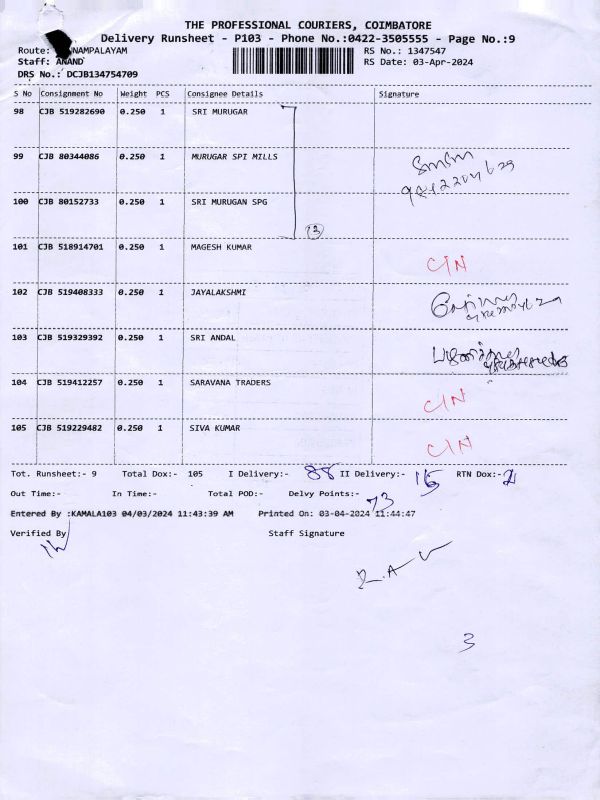 THE PROFESSIONAL COURIERS, COIMBATORE
Delivery Runsheet - P103 - Phone No.:0422-3505555 - Page No.:9
Route: NAMPALAYAM
RS No.: 1347547
Staff: ANAND
RS Date: 03-Apr-2024
DRS No.: DCJB134754709
S No Consignment No Weight PCS Consignee Details Signature
98 CJB 519282690 0.250 1 SRI MURUGAR
99 CJB 80344086 0.250 1 MURUGAR SPI MILLS
100 CJB 80152733 0.250 1 SRI MURUGAN SPG
3
101 CJB 518914701 0.250 1 MAGESH KUMAR C/N
102 CJB 519408333 0.250 1 JAYALAKSHMI
103 CJB 519329392 0.250 1 SRI ANDAL
104 CJB 519412257 0.250 1 SARAVANA TRADERS C/N
105 CJB 519229482 0.250 1 SIVA KUMAR C/N
Tot. Runsheet:- 9 Total Dox:- 105 I Delivery:- 88 II Delivery:- 15 RTN Dox:- 2
Out Time:- In Time:- Total POD:- Delvy Points:- 73
Entered By :KAMALA103 04/03/2024 11:43:39 AM Printed On: 03-04-2024 11:44:47
Verified By Staff Signature
3